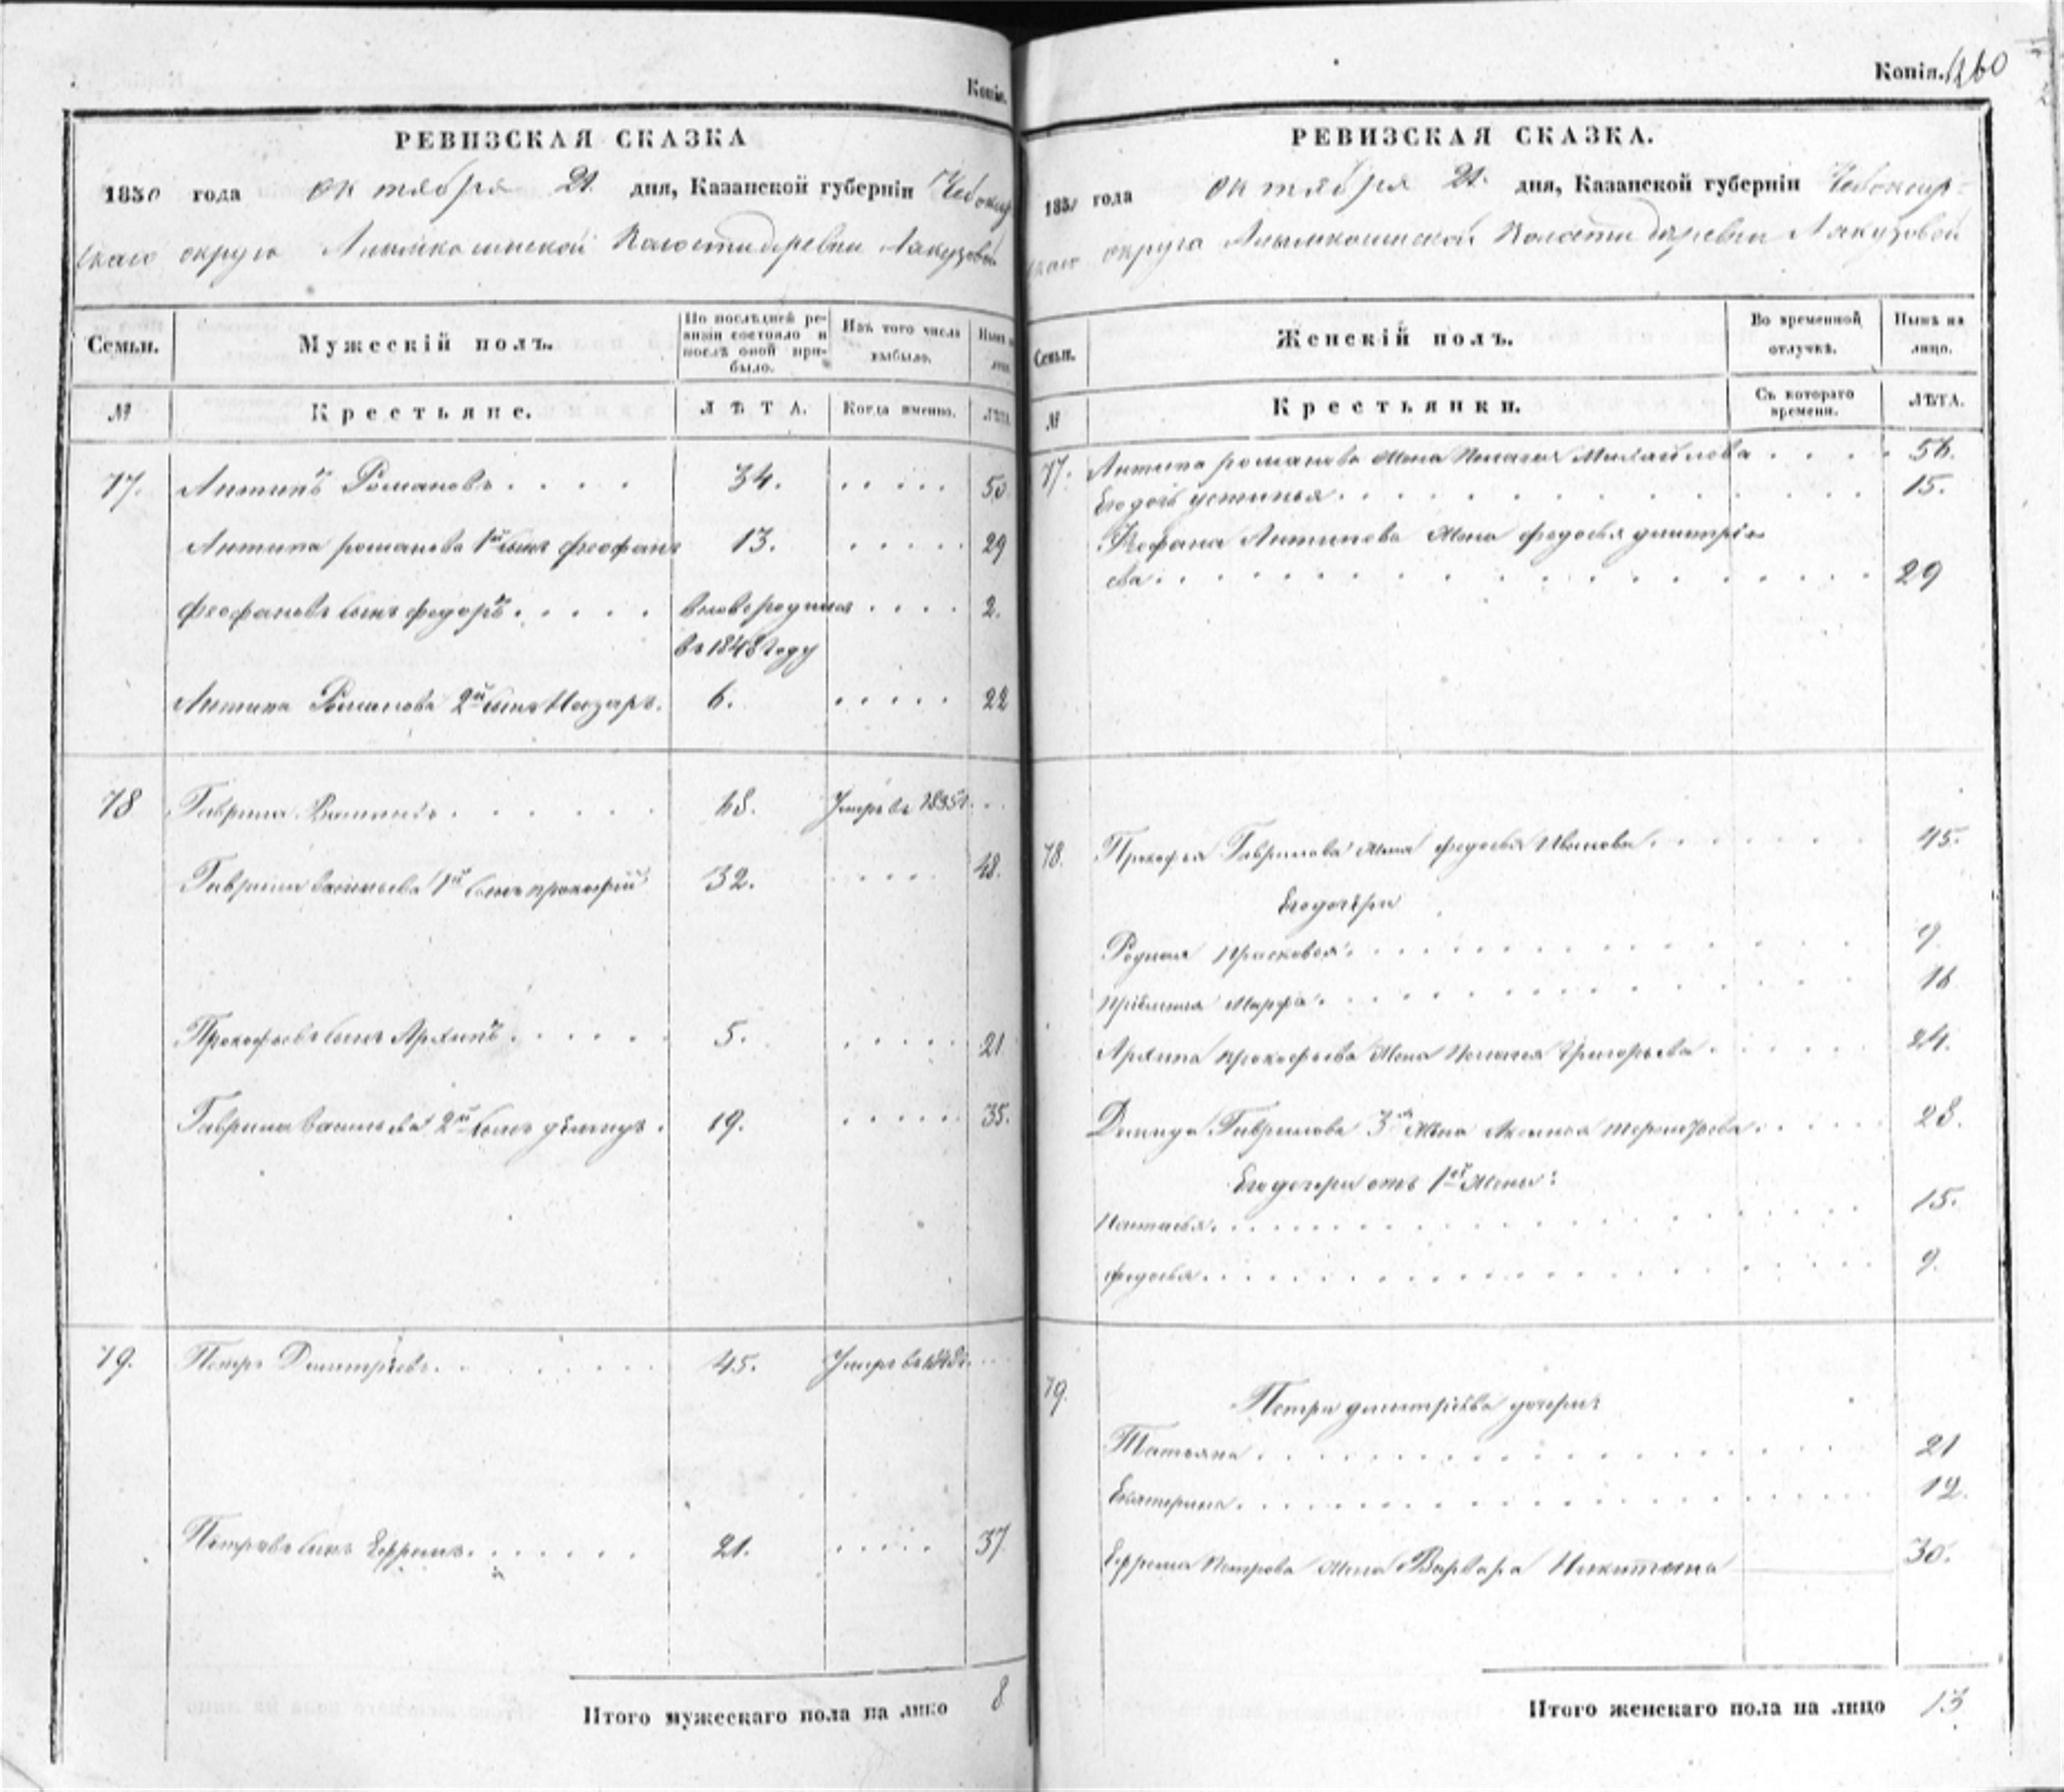 Копія.
РЕВИЗСКАЯ СКАЗКА
1850 года октября 21. дня, Казанской губерніи Чебоксар
скаго округа волости деревни
Семьи. Мужескій полъ. По послѣдней ревизіи состояло и послѣ оной прибыло. Изъ того числа выбыло. Нынѣ на лицо
№ Крестьяне. ЛѢТА. Когда именно. ЛѢТА.
77. Антипъ Романовъ . . . . 34. . . . . . 50.
Антипа романова 1й сынъ феофанъ 13. . . . . . 29
феофановъ сынъ федоръ . . . . . вновь родился . . . . 2.
въ 1848 году
Антипа Романова 2й сынъ Назаръ. 6. . . . . . 22
78 Гаврила Васильевъ . . . . . . 68. Умеръ въ 1835г. . .
Гаврила васильева 1й сынъ прокофій 32. . . . . . 48.
Прокофьевъ сынъ Архипъ . . . . . . 5. . . . . . 21
Гаврила васильева 2й сынъ демидъ . 19. . . . . . 35.
79. Петръ Дмитріевъ . . . . . . . 45. Умеръ въ . . .
Петровъ сынъ Ефремъ . . . . . . 21. . . . . . 37
Итого мужескаго пола на лицо 8
Копія. 460
РЕВИЗСКАЯ СКАЗКА.
1850 года октября 21. дня, Казанской губерніи Чебоксар-
скаго округа волости деревни
Семьи. Женскій полъ. Во временной отлучкѣ. Нынѣ на лицо.
№ Крестьянки. Съ котораго времени. ЛѢТА.
77. Антипа романова жена Пелагея Михайлова . . . . 56.
Его дочь устинья . . . . . . . . . . . . . 15.
Феофана Антипова жена федосья дмитріе
ва . . . . . . . . . . . . . . . . 29
78. Прокофья Гаврилова жена федосья Иванова . . . . . . 45.
Его дочери
Родная прасковья . . . . . . . . . . . . 9
Марфа . . . . . . . . . . . . 16
Архипа прокофьева жена Пелагея Григорьева . . . . . . 24.
Демида Гаврилова 3я жена . . . . . 28.
Его дочери отъ 1й жены:
Настасья . . . . . . . . . . . . . . . . . 15.
федосья . . . . . . . . . . . . . . . . . 9.
79. Петра дмитріева дочери:
Татьяна . . . . . . . . . . . . . . . . 21
Екатерина . . . . . . . . . . . . . . . . . 12.
Ефрема Петрова жена Варвара Никитина 30.
Итого женскаго пола на лицо 13